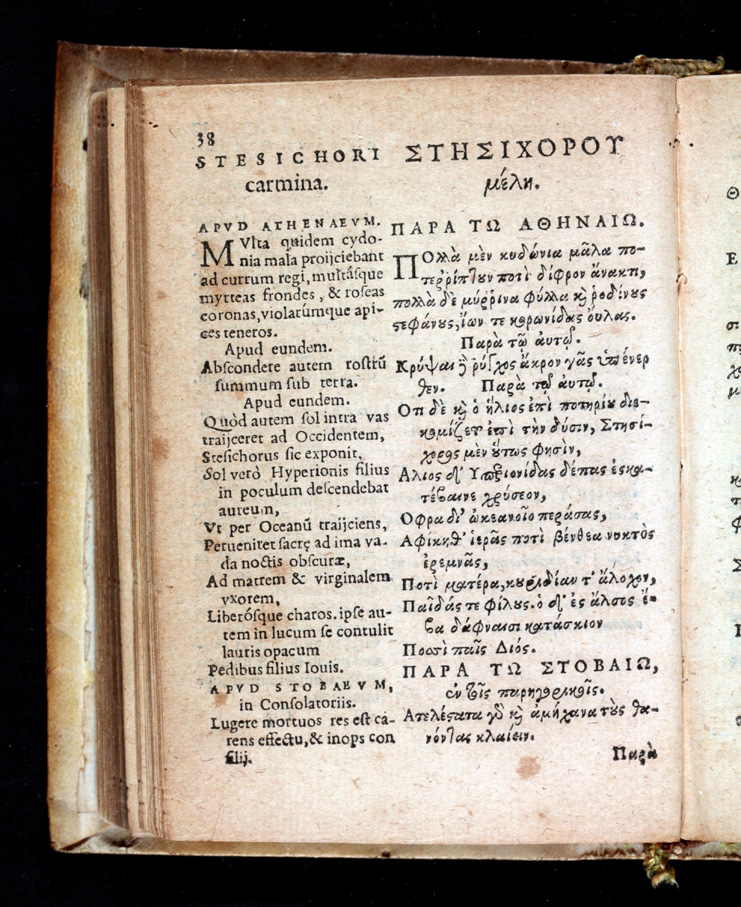 38
STESICHORI
carmina.
APVD ATHENAEVM.
MVlta quidem cydo-
nia mala proijciebant
ad currum regi, multásque
myrteas frondes, & roseas
coronas, violarúmque api-
ces teneros.
Apud eundem.
Abscondere autem rostrũ
summum sub terra.
Apud eundem.
Quòd autem sol intra vas
traijceret ad Occidentem,
Stesichorus sic exponit.
Sol verò Hyperionis filius
in poculum descendebat
aureum,
Vt per Oceanũ traijciens,
Perueniret sacrę ad ima va-
da noctis obscuræ,
Ad matrem & virginalem
vxorem,
Liberósque charos. ipse au-
tem in lucum se contulit
lauris opacum
Pedibus filius Iouis.
APVD STOBAEVM,
in Consolatoriis.
Lugere mortuos res est ca-
rens effectu, & inops con
silij.
ΣΤΗΣΙΧΟΡΟΥ
μέλη.
ΠΑΡΑ ΤΩ ΑΘΗΝΑΙΩ.
ΠΟλλὰ μὲν κυδώνια μᾶλα πο-
τεῤῥίπτουν ποτὶ δίφρον ἄνακτι,
πολλὰ δὲ μύῤῥινα φύλλα καὶ ῥοδίνους
στεφάνους, ἴων τε κορωνίδας οὔλας.
Παρὰ τῷ αὐτῷ.
Κρύψαι δὲ ῥύγχος ἄκρον γᾶς ὑπένερ
θεν. Παρὰ τῷ αὐτῷ.
Οτι δὲ καὶ ὁ ἥλιος ἐπὶ ποτηρίου διε-
κομίζετο ἐπὶ τὴν δύσιν, Στησί-
χορος μὲν οὕτως φησὶν,
Αλιος δ' Υπεριονίδας δέπας ἐσκα-
τέβαινε χρύσεον,
Οφρα δι' ὠκεανοῖο περάσας,
Αφίκηθ' ἱερᾶς ποτὶ βένθεα νυκτὸς
ἐρεμνᾶς,
Ποτὶ ματέρα, κουριδίαν τ' ἄλοχον,
Παῖδάς τε φίλους. ὁ δ' ἐς ἄλσος ἔ-
βα δάφναισι κατάσκιον
Ποσὶ παῖς Διός.
ΠΑΡΑ ΤΩ ΣΤΟΒΑΙΩ,
ἐν τοῖς παρηγορικοῖς.
Ατελέστατα γὸ καὶ ἀμήχανα τοὺς θα-
νόντας κλαίειν.
Παρὰ